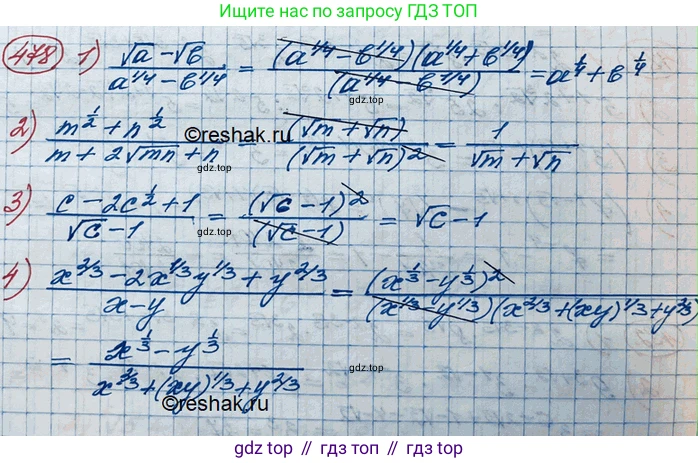 Ищите нас по запросу ГДЗ ТОП
478 1) (√a - √b)/(a^{1/4} - b^{1/4}) = ((a^{1/4} - b^{1/4})(a^{1/4} + b^{1/4}))/((a^{1/4} - b^{1/4})) = a^{1/4} + b^{1/4}
gdz.top
©reshak.ru
2) (m^{1/2} + n^{1/2})/(m + 2√mn + n) = (√m + √n)/(√m + √n)^2 = 1/(√m + √n)
3) (c - 2c^{1/2} + 1)/(√c - 1) = (√c - 1)^2/(√c - 1) = √c - 1
gdz.top
4) (x^{2/3} - 2x^{1/3}y^{1/3} + y^{2/3})/(x - y) = (x^{1/3} - y^{1/3})^2/((x^{1/3} - y^{1/3})(x^{2/3} + (xy)^{1/3} + y^{2/3}))
= (x^{1/3} - y^{1/3})/(x^{2/3} + (xy)^{1/3} + y^{2/3})
gdz.top
©reshak.ru
gdz top // гдз топ // gdz.top